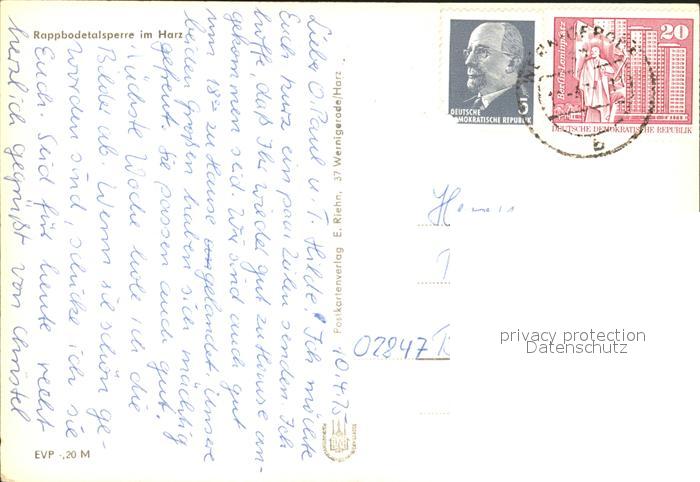 Rappbodetalsperre im Harz
Liebe O. Paul u. T. Hilde! Ich möchte
Euch kurz ein paar Zeilen senden. Ich
hoffe, daß Ihr wieder gut zu Hause an-
gekommen seid. Wir sind auch gut
um 18⁰⁰ zu Hause gelandet. Unsere
beiden Großen haben sich mächtig
gefreut. Sie passen auch gut.
Nächste Woche hole ich die
Bilder ab. Wenn sie schön ge-
worden sind, schicke ich sie
Euch. Seid für heute recht
herzlich gegrüßt von Christel
10.4.75
EVP -,20 M
Postkartenverlag E. Riehn, 37 Wernigerode/Harz
DEUTSCHE
DEMOKRATISCHE REPUBLIK
5
Berlin·Leninplatz
20
DEUTSCHE DEMOKRATISCHE REPUBLIK
WERNIGERODE
02847
privacy protection
Datenschutz